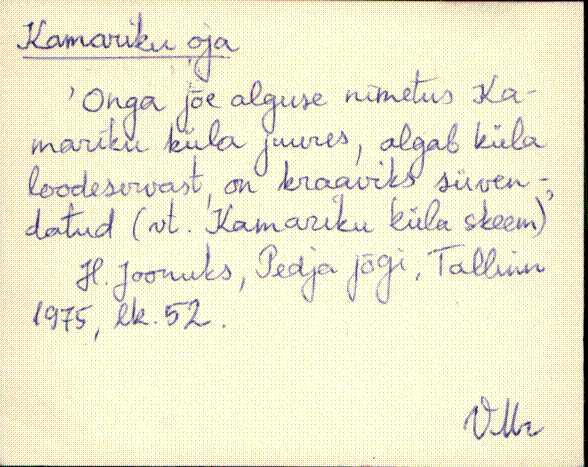 Kamariku oja
'Onga jõe alguse nimetus Ka-
mariku küla juures, algab küla
loodeservast, on kraaviks süven-
datud (vt. Kamariku küla skeem)'
H. Joonuks, Pedja jõgi, Tallinn
1975, lk. 52.